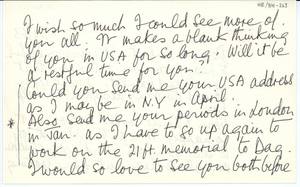 I wish so much I could see more of
you all. It makes a blank thinking
of you in USA for so long. Will it be
a restful time for you?
Could you send me your USA address
as I may be in N.Y in April.
Also send me your periods in London
in Jan. as I have to go up again to
work on the 21ft. memorial to Dag.
I would so love to see you both before